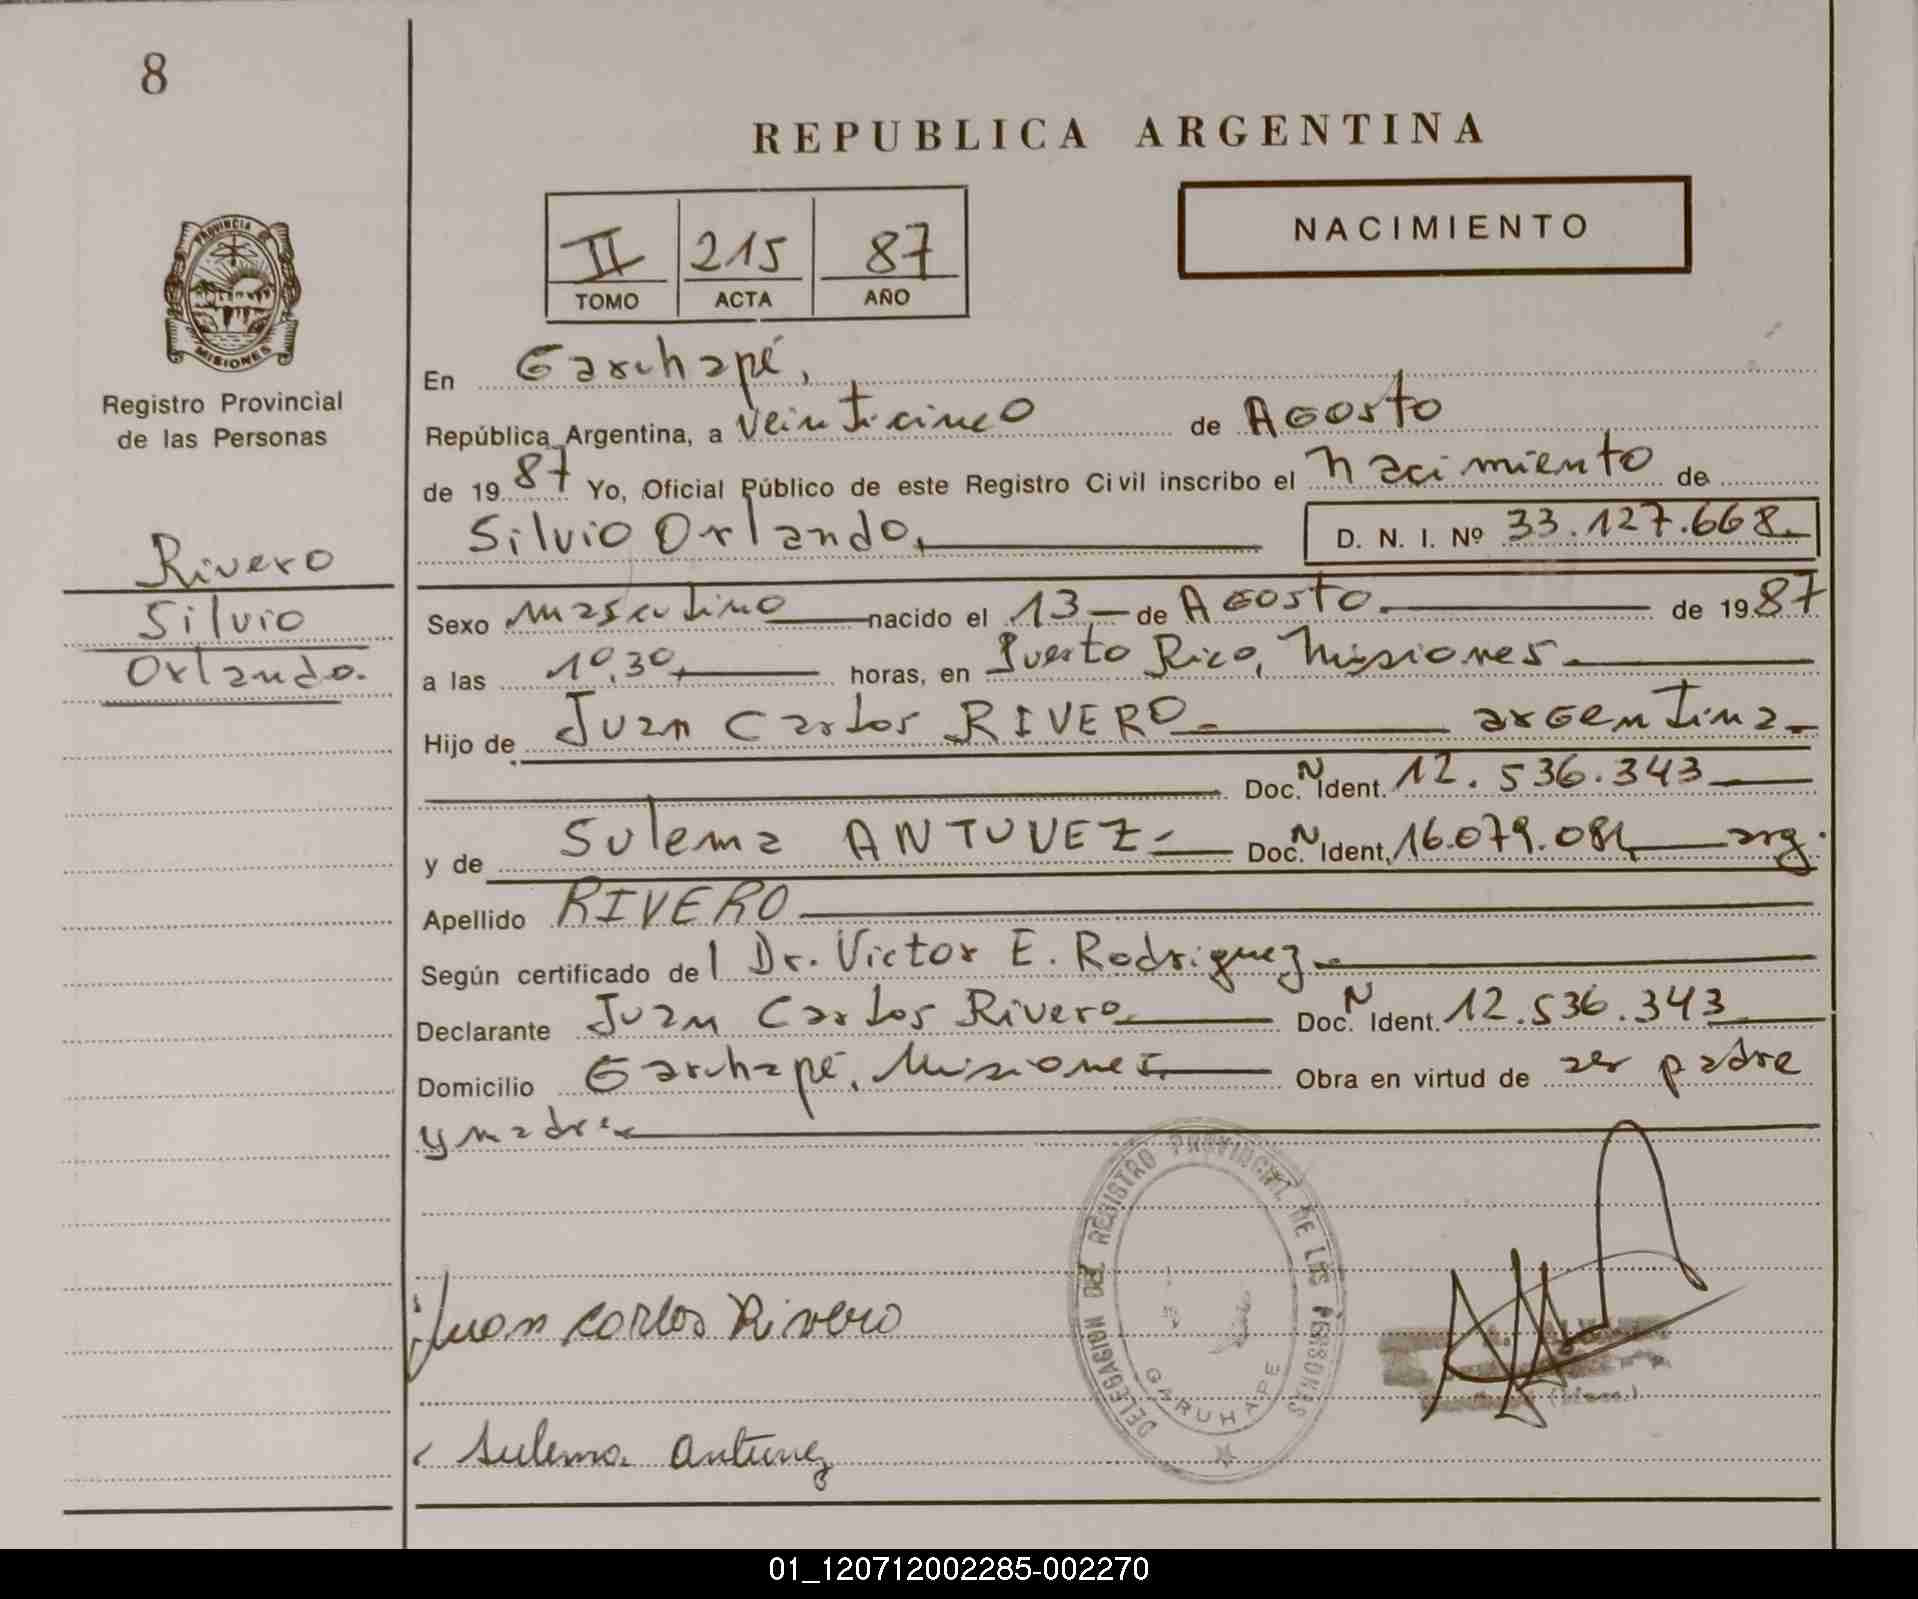 8
REPUBLICA ARGENTINA
NACIMIENTO
II 215 87
TOMO ACTA AÑO
PROVINCIA DE
MISIONES
Registro Provincial
de las Personas
Rivero
Silvio
Orlando.
En Garuhapé,
República Argentina, a veinticinco de Agosto
de 1987 Yo, Oficial Público de este Registro Civil inscribo el nacimiento de
Silvio Orlando, D. N. I. Nº 33.127.668.
Sexo masculino nacido el 13 de Agosto. de 1987
a las 10,30, horas, en Puerto Rico, Misiones.
Hijo de Juan Carlos RIVERO argentina
Doc. N Ident. 12.536.343
y de Sulema ANTUNEZ Doc. N Ident. 16.079.081 arg.
Apellido RIVERO
Según certificado del Dr. Victor E. Rodriguez
Declarante Juan Carlos Rivero Doc. N Ident. 12.536.343
Domicilio Garuhapé, Misiones Obra en virtud de ser padre
y madre
DELEGACION DEL REGISTRO PROVINCIAL DE LAS PERSONAS
GARUHAPE
Juan Carlos Rivero
Sulema Antunez
01_120712002285-002270